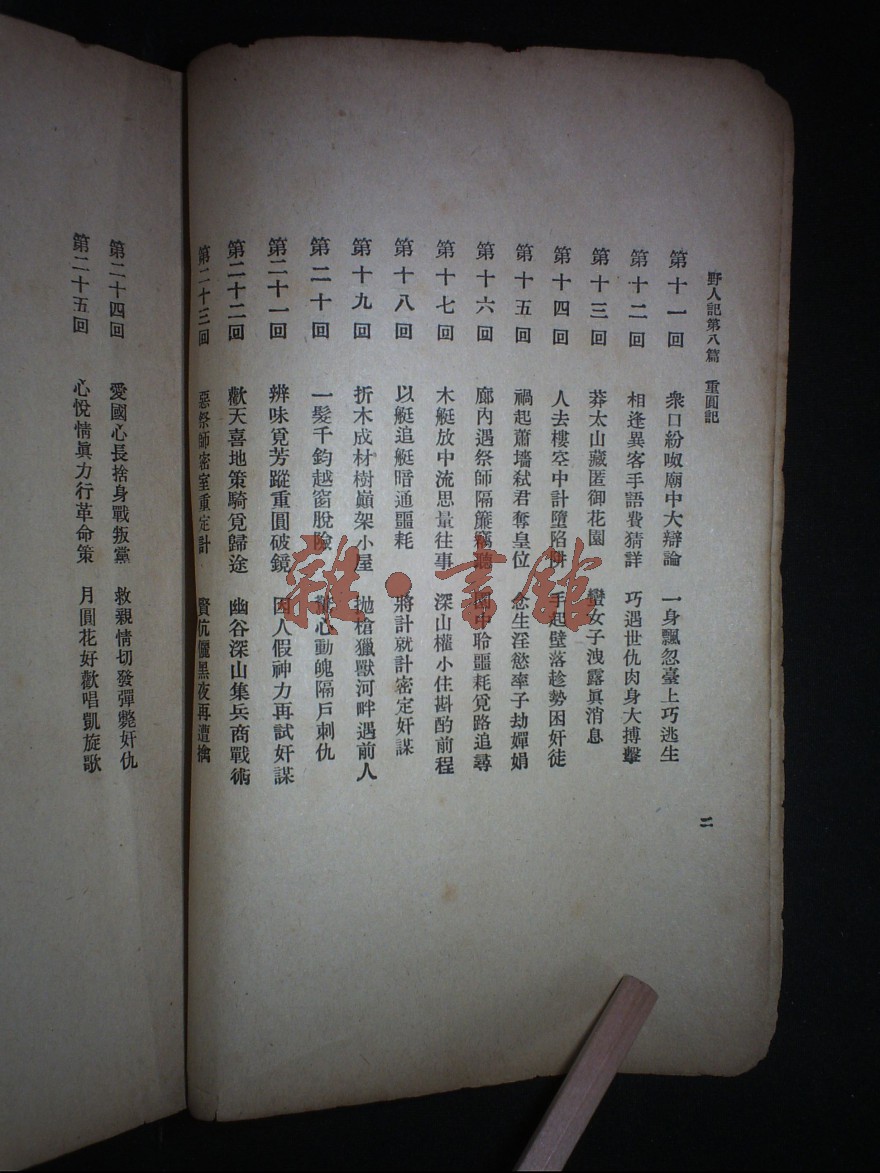 野人記第八篇 重圓記
第十一回 衆口紛呶廟中大辯論 一身飄忽臺上巧逃生
第十二回 相逢異客手語費猜詳 巧遇世仇肉身大搏擊
第十三回 莽太山藏匿御花園 蠻女子洩露眞消息
第十四回 人去樓空中計墮陷阱 手起壁落趁勢困奸徒
第十五回 禍起蕭墻弑君奪皇位 念生淫慾率子劫嬋娟
第十六回 廊內遇祭師隔簾竊聽 園中聆噩耗覓路追尋
第十七回 木艇放中流思量往事 深山權小住斟酌前程
第十八回 以艇追艇暗通噩耗 將計就計密定奸謀
第十九回 折木成材樹巔架小屋 拋槍獵獸河畔遇前人
第二十回 一髮千鈞越窗脫險 驚心動魄隔戶刺仇
第二十一回 辨味覓芳蹤重圓破鏡 因人假神力再試奸謀
第二十二回 歡天喜地策騎覓歸途 幽谷深山集兵商戰術
第二十三回 惡祭師密室重定計 賢伉儷黑夜再遭擒
第二十四回 愛國心長捨身戰叛黨 救親情切發彈斃奸仇
第二十五回 心悅情眞力行革命策 月圓花好歡唱凱旋歌
二
雜·書館